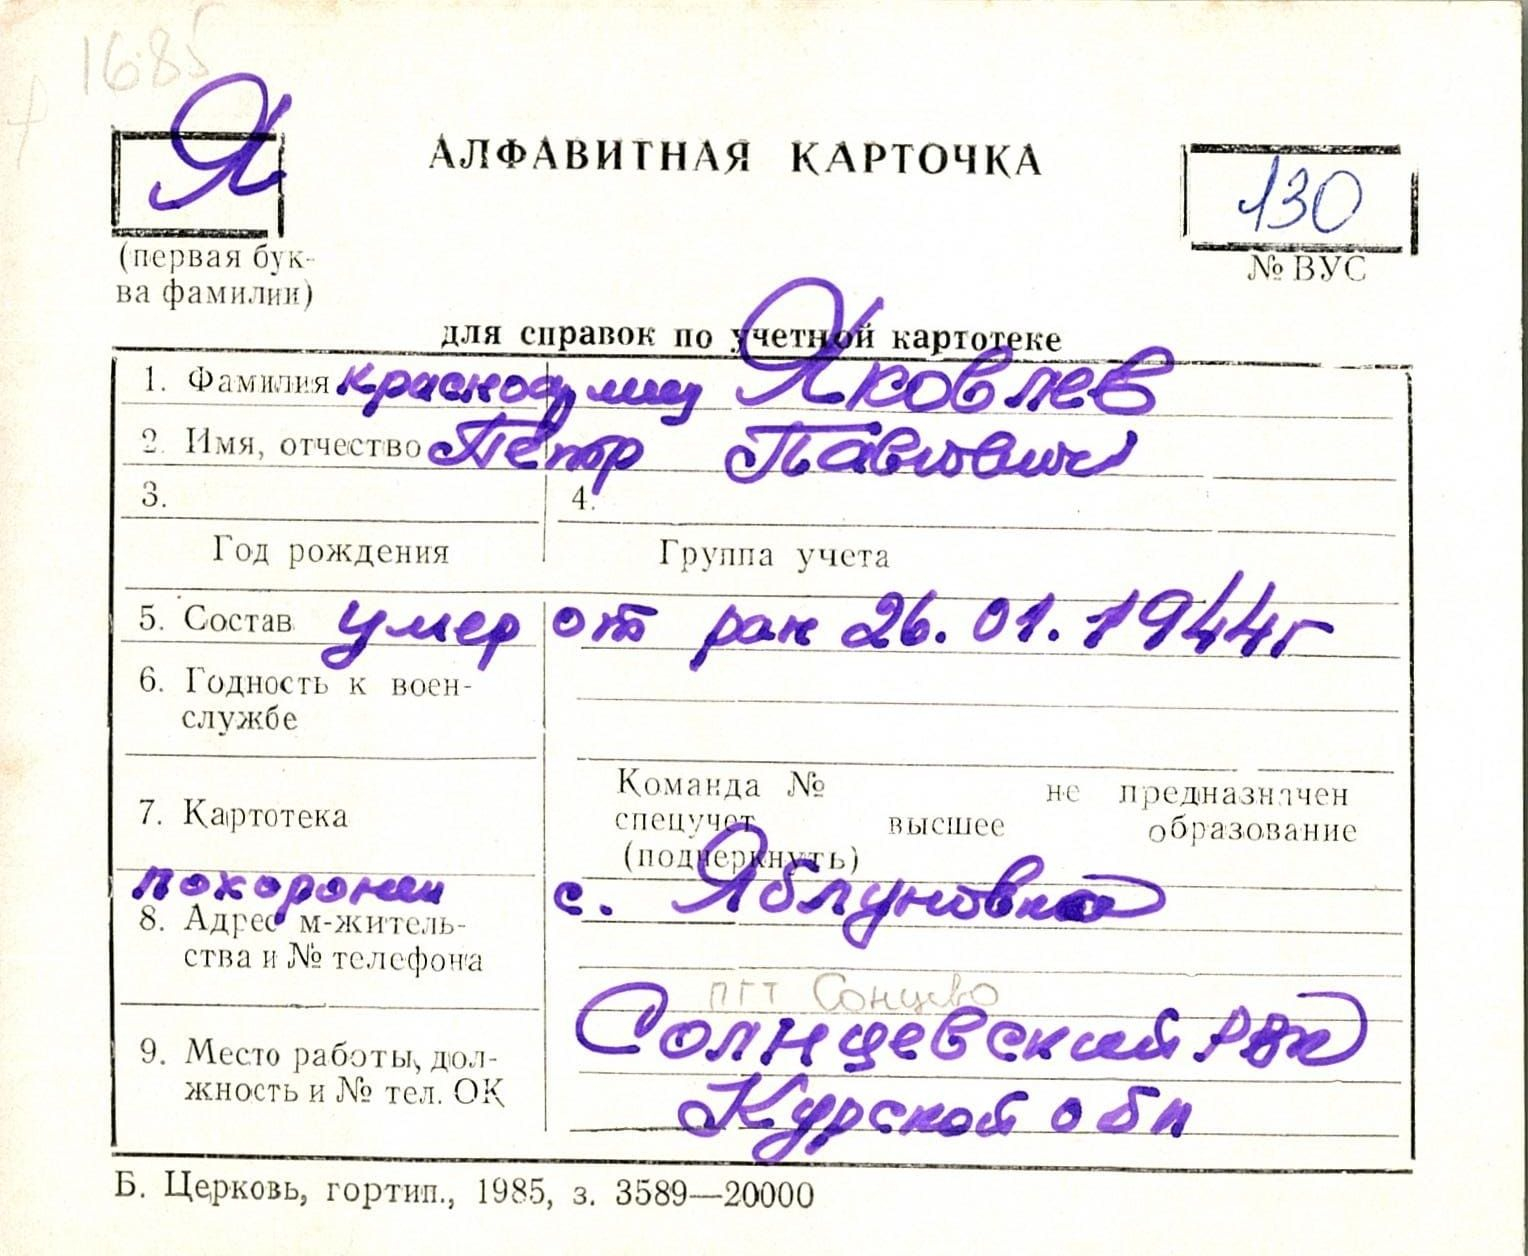 1685
Я
АЛФАВИТНАЯ КАРТОЧКА
130
(первая бук-
ва фамилии)
№ ВУС
для справок по учетной картотеке
1. Фамилия Яковлев
2. Имя, отчество Петр Павлович
3.
4.
Год рождения
Группа учета
5. Состав умер от ран 26.01.1944г
6. Годность к воен-
службе
7. Картотека
Команда № не предназначен
спецучет высшее образование
(подчеркнуть)
похоронен с. Яблуновка
8. Адрес м-житель-
ства и № телефона
пгт Сонцево
Солнцевский РВК
9. Место работы, дол-
жность и № тел. ОК
Курской обл
Б. Церковь, гортип., 1985, з. 3589—20000